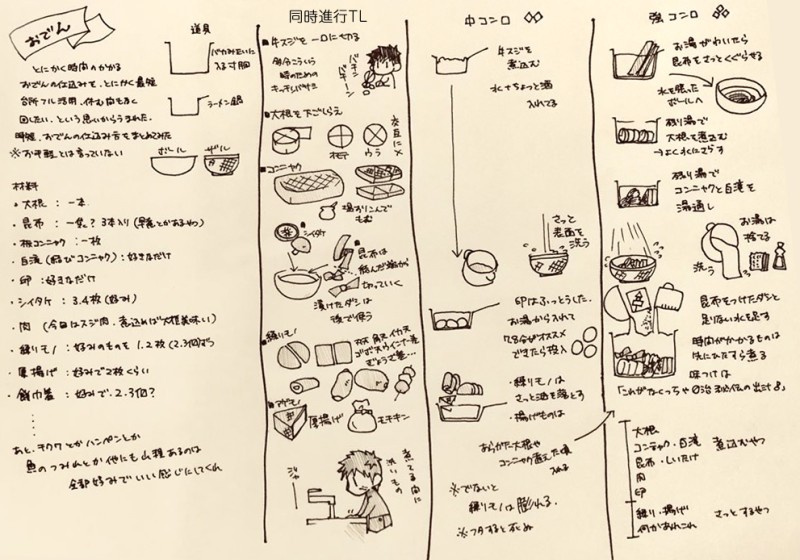 おでん
道具
バカみたいに
入る寸胴
ラーメン鍋
ボール
ザル
とにかく時間のかかる
おでんの仕込みを、とにかく最短
台所フル活用、休む間もなく
回したい、という思いからうまれた、
おでんの仕込み方をまとめてみた
※お手軽とは言っていない
材料
・大根 : 一本
・昆布 : 一袋? 3本入り
・板コンニャク : 一枚
・白滝 (結びコンニャク) : 好きなだけ
・卵 : 好きなだけ
・シイタケ : 3.4枚 (好み)
・肉 (今日はスジ肉、煮込めば大概美味しい)
・練りモノ : 好みのものを1.2枚 (2.3個)ずつ
・厚揚げ : 好みで2枚くらい
・餅巾着 : 好みで、2.3個?
あと、チクワとかハンペンとか
魚のつみれとか他にも山程あるのは
全部好みでいい感じにしてくれ
同時進行TL
■牛スジを一口に切る
キッチンバサミ
バチン
バチーン
■大根を下ごしらえ
オモテ
ウラ
交互に×
■コンニャク
塩ふりこんで
もむ
■シイタケ
■昆布は
結んだ端から
切っていく
漬けたダシは
後で使う
■練りモノ
■アゲモノ
厚揚げ
モチキン
ジャー
煮てる間に
洗いもの
中コンロ
牛スジを
煮込む
水+ちょっと酒
入れてる
さっと
表面を
洗う
卵はふっとうした
お湯から入れて
7.8分がオススメ
できたら投入
・練りモノは
さっと油を落とす
・揚げものは
あらかた大根や
コンニャク煮えた頃
入れる
※でないと
練りモノは膨れる。
※フタすると死ぬ
強コンロ
お湯がわいたら
昆布をさっとくぐらせる
水を張った
ボールへ
残り湯で
大根を煮込む
→よく水にさらす
残り湯で
コンニャクと白滝を
湯通し
お湯は
捨てる
洗う
昆布をつけたダシと
足りない水を足す
時間がかかるものは
先にひたすら煮る
味つけは
大根
コンニャク・白滝
昆布・しいたけ
肉
卵
煮込むやつ
練り・揚げ
何かあれこれ
さっとするやつ